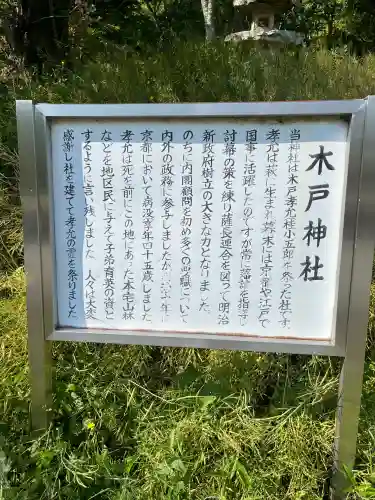 木戸神社
当神社は木戸孝允(桂小五郎)を祭った社です
孝允は萩に生まれ幕末には京都や江戸で
国事に活躍したのですが常に藩論を指導し
討幕の策を練り薩長連合を図って明治
新政府樹立の大きな力となりました
のちに内閣顧問を初め多くの要職について
内外の政務に参与しましたが明治十年に
京都において病没享年四十五歳でした
孝允は死を前にこの地にあった本宅山林
などを地区民に与えて子弟育英の資と
するように言い残しました 人々は大変
感謝し社を建てて孝允の霊を祭りました